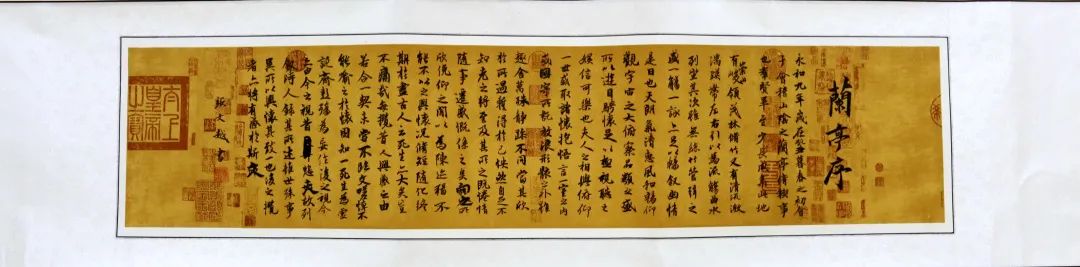 蘭亭序
永和九年歲在癸丑暮春之初會
于會稽山陰之蘭亭脩稧事
也羣賢畢至少長咸集此地
崇山
有峻領茂林脩竹又有清流激
湍暎帶左右引以為流觴曲水
列坐其次雖無絲竹管弦之
盛一觴一詠亦足以暢敘幽情
是日也天朗氣清惠風和暢仰
觀宇宙之大俯察品類之盛
所以遊目騁懷足以極視聽之
娛信可樂也夫人之相與俯仰
一世或取諸懷抱悟言一室之內
或因寄所託放浪形骸之外雖
趣舍萬殊靜躁不同當其欣
於所遇暫得於己怏然自足不
知老之將至及其所之既惓情
隨事遷感慨係之矣向之所
欣俛仰之閒以為陳迹猶不
能不以之興懷況脩短隨化終
期於盡古人云死生亦大矣豈
不痛哉每攬昔人興感之由
若合一契未嘗不臨文嗟悼不
能喻之於懷固知一死生為虛
誕齊彭殤為妄作後之視今
亦由今之視昔悲夫故列
敘時人錄其所述雖世殊事
異所以興懷其致一也後之攬
者亦將有感於斯文
文越書
太上皇帝之寶